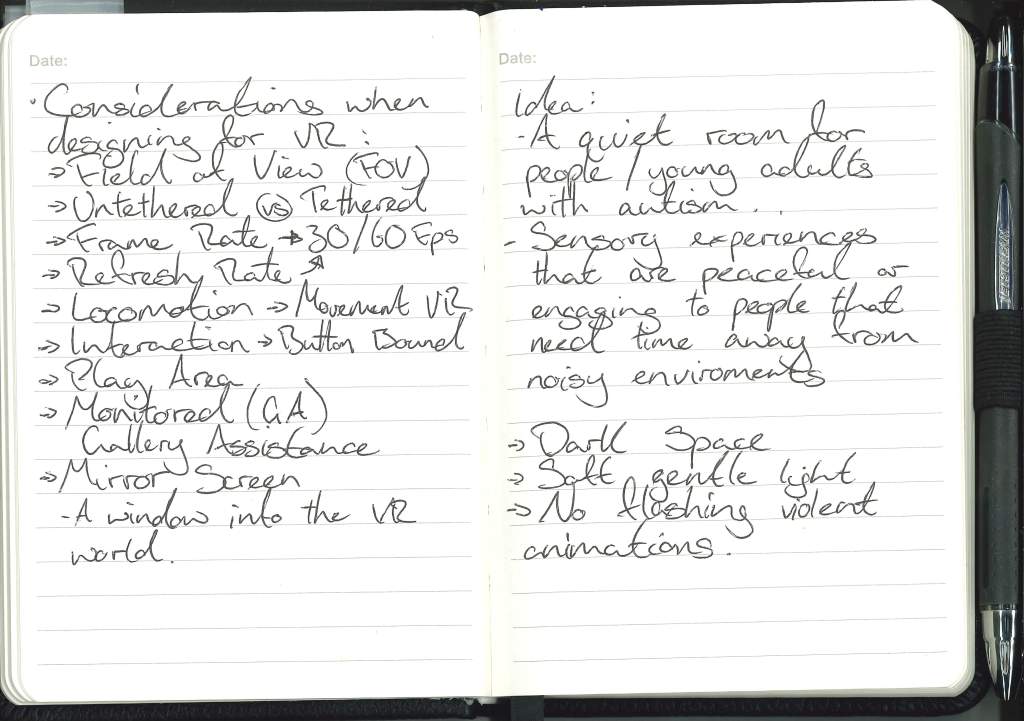 Date:
· Considerations when
designing for VR:
→ Field of View (FOV)
→ Untethered vs Tethered
→ Frame Rate → 30/60 Fps
→ Refresh Rate ↗
→ Locomotion → Movement VR
→ Interaction → Button Bound
→ Play Area
→ Monitored (GA)
Gallery Assistance
→ Mirror Screen
- A window into the VR
world.
Date:
Idea:
- A quiet room for
people / young adults
with autism...
- Sensory experiences
that are peaceful or
engaging to people that
need time away from
noisy enviroments
→ Dark Space
→ Soft gentle light
→ No flashing violent
animations.